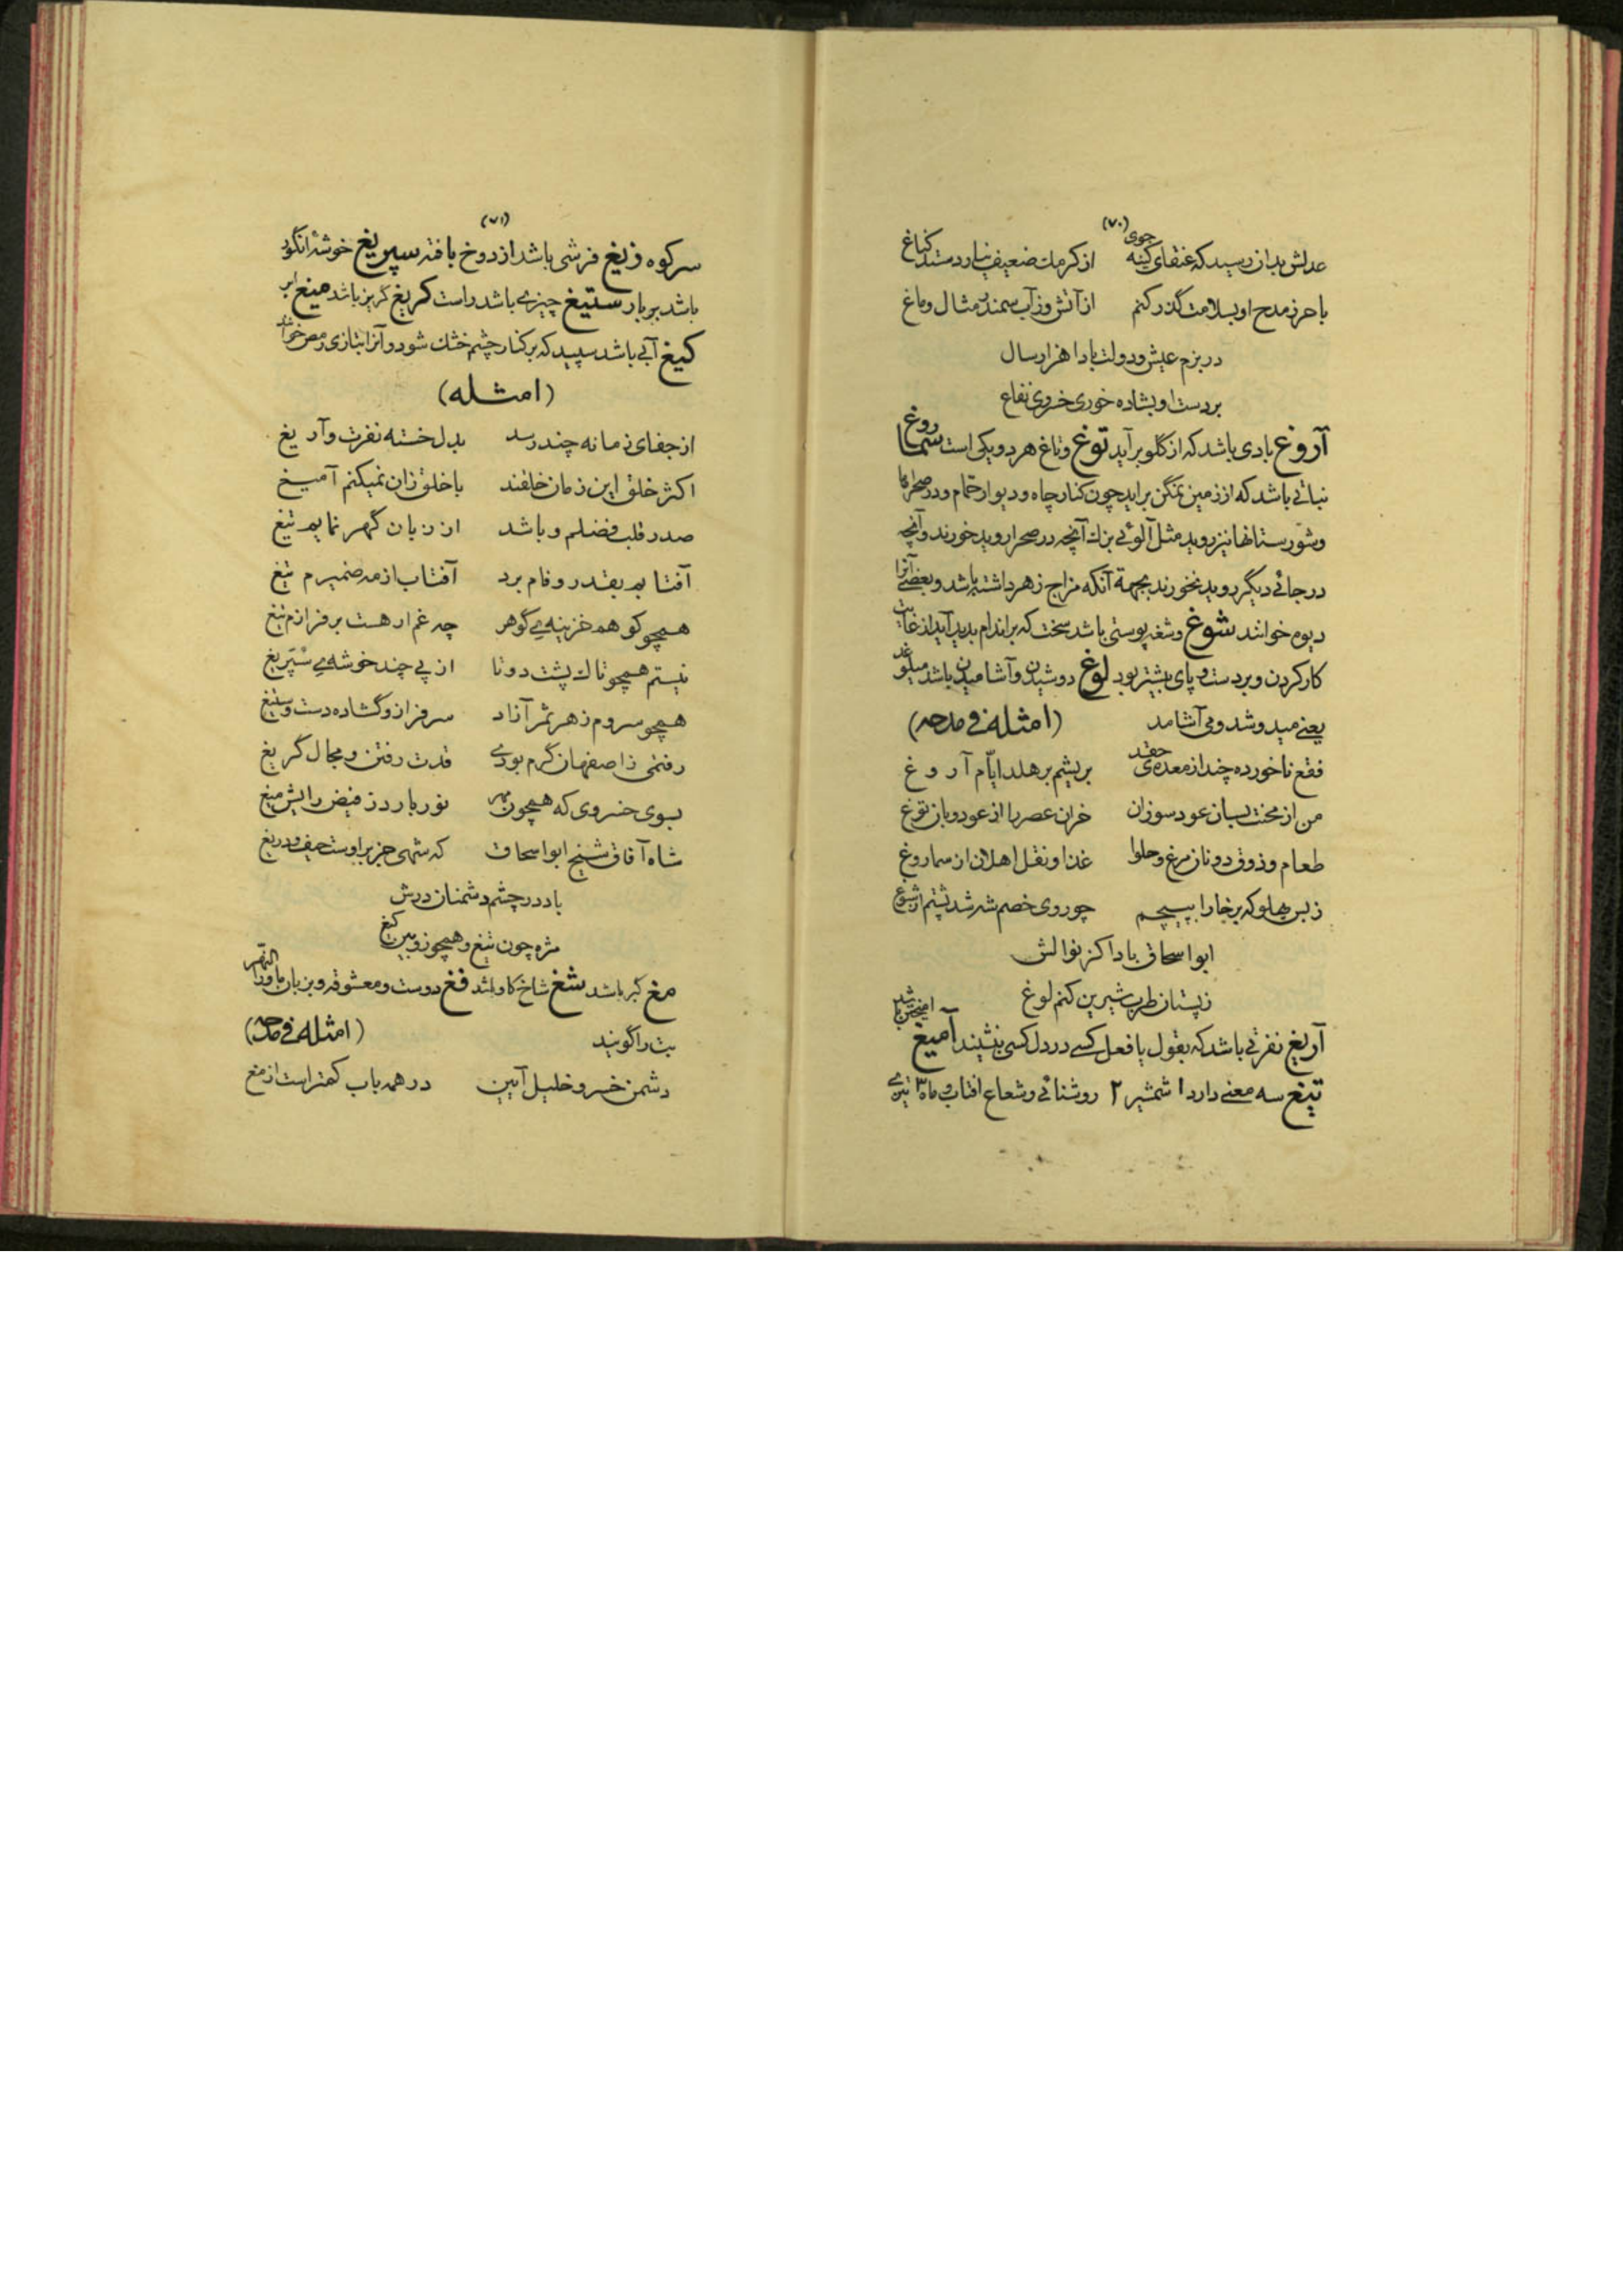 (۷۰)
عدلش بدان رسید که عنقای کینه جوی از کرمک ضعیف نیارد ستد کناغ
با حرز مدح او بسلامت گذر کنم از آتش وز آب سمندر مثال و ماغ
در بزم عیش و دولت بادا هزار سال
بر دست او بشاده خوری خسروی نفاغ
آروغ بادی باشد که از گلو برآید توغ و تاغ هر دو یکی است سماروغ
نباتی باشد که از زمین نمگن براید چون کنار چاه و دیوار حمام و در صحراها
و شورستانها نیز روید مثل آلوئی بزرك آنچه در صحرا روید خورند و آنچه
در جائی دیگر روید نخورند بجهة آنکه مزاج زهر داشته باشد و بعضی آنرا
دیوه خوانند شوغ و شغه پوستی باشد سخت که بر اندام بدید آید از غایت
کار کردن و بر دست و پای بیشتر بود لوغ دوشیدن و آشامیدن باشد میلوغد
یعنی میدوشد و می آشامد (امثله فی مدحه)
فقع ناخورده چند از معده‌ی حقد بریشم بر هلد ایام آروغ
من از محنت بسان عود سوزان خران عصر را از عود و بان توغ
طعام و ذوق دونان مرغ و حلوا غذا و نقل اهلان از سماروغ
ز بس پهلو که بر خارا بپیچم چو روی خصم شه شد پشتم از شوغ
ابو اسحاق بادا کز نوالش
ز پستان طرب شیرین کنم لوغ
آریغ نفرتی باشد که بقول یا فعل کسی در دل کسی بنشیند آمیغ امیختن باشد
تیغ سه معنی دارد ۱ شمشیر ۲ روشنائی و شعاع افتاب و ماه ۳ تیزی
(۷۱)
سر کوه زیغ فرشی باشد از دوخ بافته سپریغ خوشهٔ انگور
باشد بر بار ستیغ چیزی باشد راست کریغ گریز باشد میغ ابر
کیغ آبی باشد سپید که بر کنار چشم خشك شود و آنرا بتازی رمص خوانند
(امثله)
از جفای زمانه چند رسد بدل خسته نفرت و آریغ
اکثر خلق این زمان خلقند با خلق زان نمیکنم آمیغ
صدر قلب فضلم و باشد از زبان گهر نمایم تیغ
آفتابم بقدر و فام برد آفتاب از مه ضمیرم تیغ
همچو کو هم خزینه‌ی گوهر چه غم ار هست بر فرازم تیغ
نیستم همچو تاك پشت دوتا از پی چند خوشه‌ی سپریغ
همچو سروم ز هر ثمر آزاد سرفراز و گشاده دست و ستیغ
رفتمی ز اصفهان گرم بودی قدرت رفتن و مجال گریغ
بسوی خسروی که همچون مهر نور بارد ز فیض رایش میغ
شاه آفاق شیخ ابو اسحاق که شهی جز بر اوست حیف و دریغ
باد در چشم دشمنان درش
مژه چون تیغ و همچو زوبین کیغ
مغ کبر باشد شغ شاخ گاو باشد فغ دوست و معشوقه و بزبان ماوراالنهر
بت را گویند (امثله فی مدحه)
دشمن خسرو خلیل آیین در همه باب کمتر است از مغ